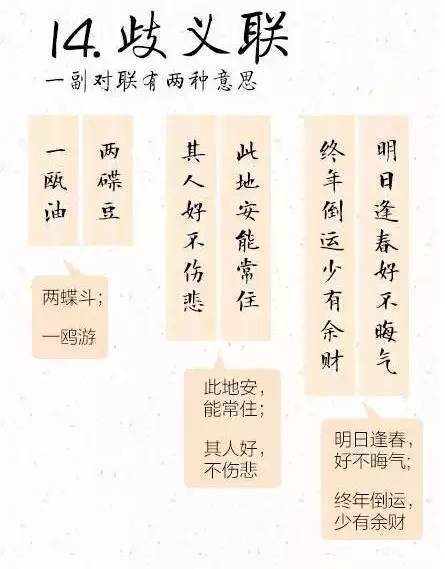 14. 歧义联
一副对联有两种意思
两碟豆
一瓯油
两蝶斗；
一鸥游
此地安能常住
其人好不伤悲
此地安，
能常住；
其人好，
不伤悲
明日逢春好不晦气
终年倒运少有余财
明日逢春，
好不晦气；
终年倒运，
少有余财